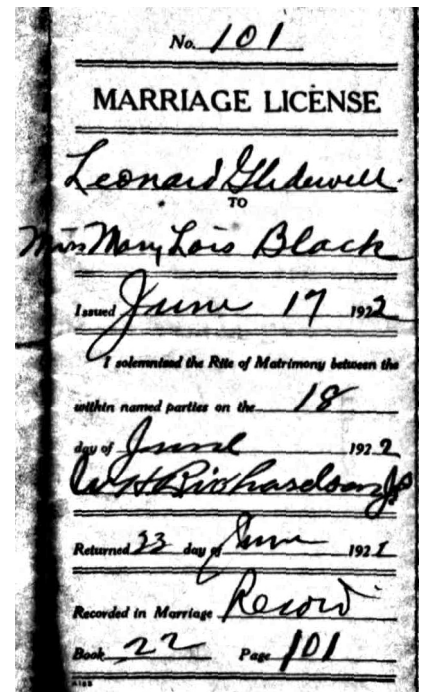 No. 101
MARRIAGE LICENSE
Leonard Glidewell
TO
Miss Mary Lois Black
Issued June 17 1922
I solemnized the Rite of Matrimony between the
within named parties on the 18
day of June 1922
W H Richardson J.P.
Returned 23 day of June 1922
Recorded in Marriage Record
Book 22 Page 101